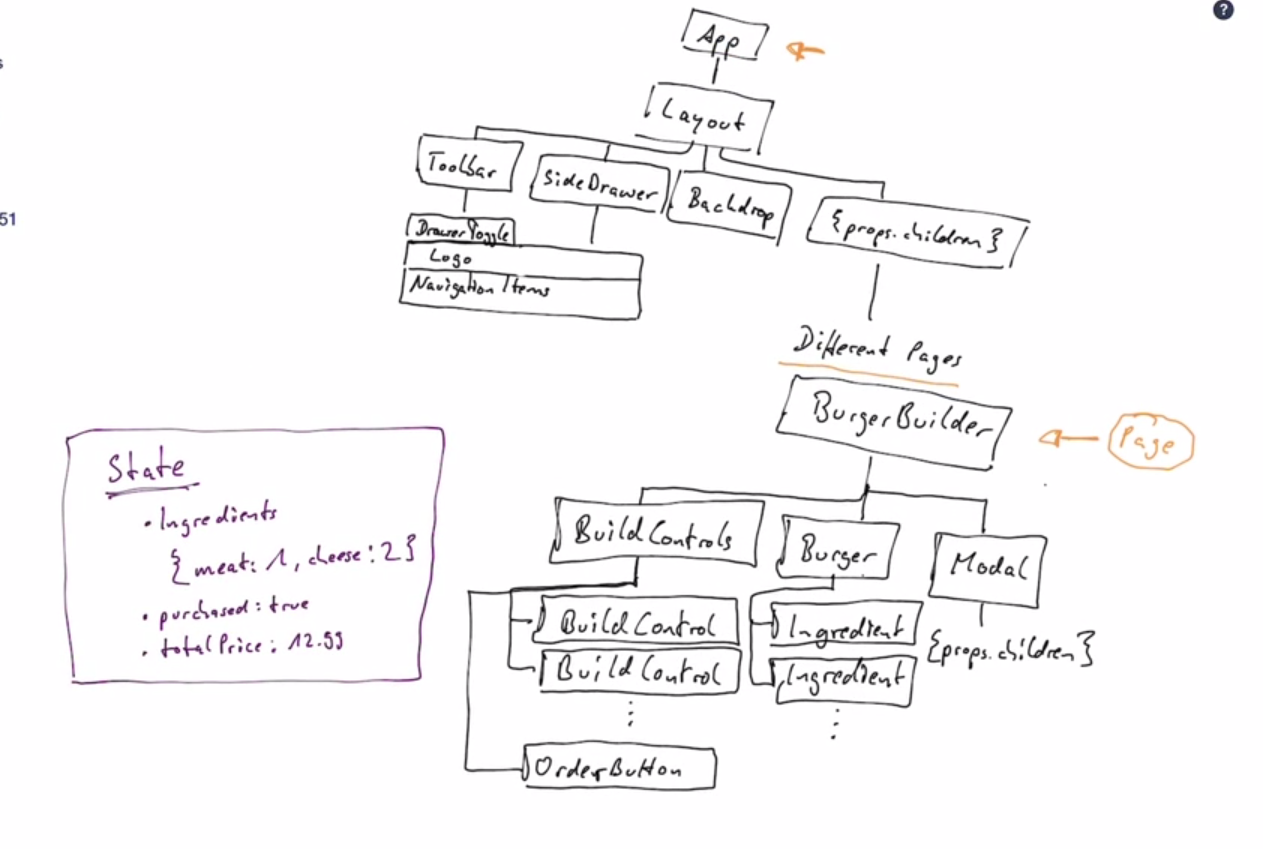 ?
App
s
Layout
Toolbar
SideDrawer
Backdrop
{props.children}
51
DrawerToggle
Logo
Navigation Items
Different Pages
BurgerBuilder
Page
State
• Ingredients
{meat: 1, cheese: 2}
• purchased: true
• totalPrice: 12.99
BuildControls
Burger
Modal
BuildControl
Ingredient
{props.children}
BuildControl
Ingredient
OrderButton